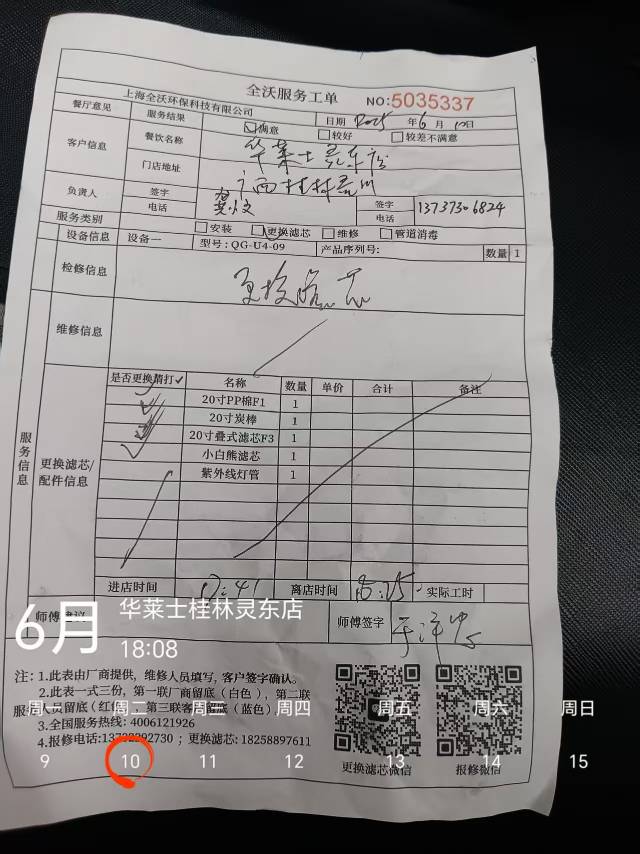 全沃服务工单
NO:5035337
上海全沃环保科技有限公司
日期 2025 年 6 月 10 日
餐厅意见 服务结果 满意 较好 较差不满意
客户信息 餐饮名称 华莱士灵东店
门店地址 广西桂林灵川
负责人 签字 签字
电话 电话 13737306824
服务类别 安装 更换滤芯 维修 管道消毒
设备信息 设备一 型号:QG-U4-09 产品序列号: 数量 1
检修信息 更换滤芯
维修信息
服务信息
更换滤芯/配件信息
是否更换请打✓ 名称 数量 单价 合计 备注
20寸PP棉F1 1
20寸炭棒 1
20寸叠式滤芯F3 1
小白熊滤芯 1
紫外线灯管 1
进店时间 17:41 离店时间 实际工时
师傅建议 师傅签字
6月 华莱士桂林灵东店
18:08
注: 1.此表由厂商提供，维修人员填写，客户签字确认。
2.此表一式三份，第一联厂商留底（白色），第二联
服务人员留底（红色），第三联客户留底（蓝色）
3.全国服务热线: 4006121926
4.报修电话:13732292730 ; 更换滤芯: 18258897611
更换滤芯微信 报修微信
周一 周二 周三 周四 周五 周六 周日
9 10 11 12 13 14 15